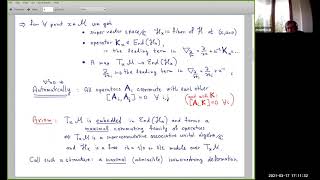 ⇒ for ∀ point x∈M we get
• super vector space/k H_x := fiber of H at (x, u=0)
• operator K_x ∈ End(H_x)
is the leading term in
• A map T_xM → End(H_x)
is the leading term in
Automatically: All operators A_i commute with each other
[A_i, A_j] = 0 ∀ i,j
and with K:
[A_i, K] = 0 ∀ i
Axiom: T_xM is embedded in End(H_x) and forms a
maximal commuting family of operators
⇒ T_xM is a supercommutative associative unital algebra/k
and H_x is a free module over T_xM.
Call such a structure: a maximal isomonodromy deformation
2021-03-17 17:11:32